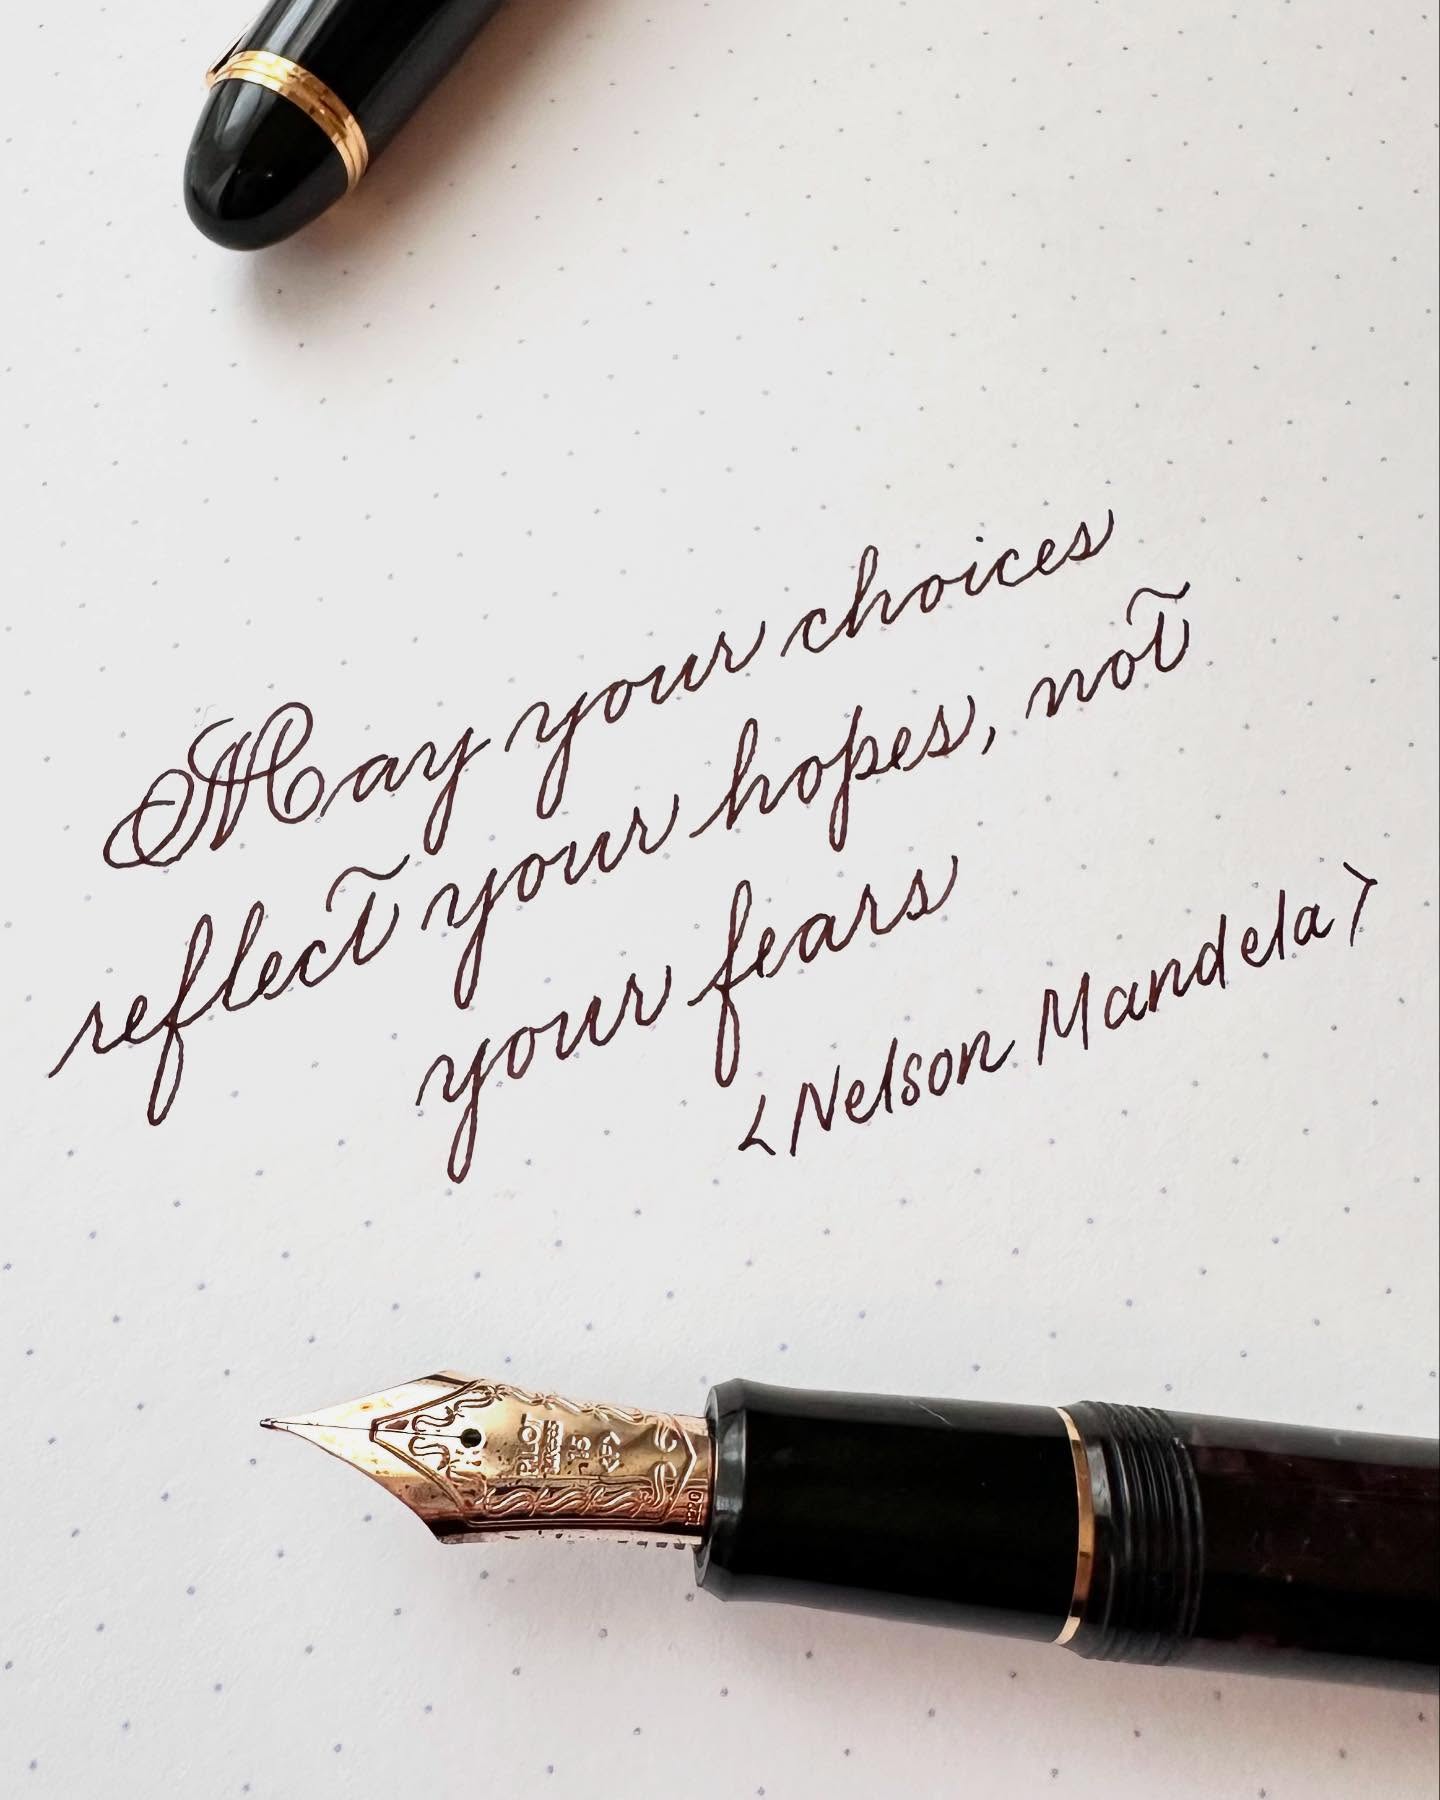 May your choices
reflect your hopes, not
your fears
<Nelson Mandela>
PILOT